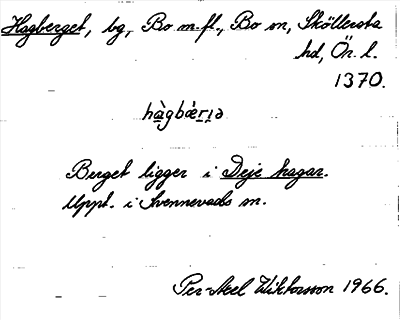 Hagberget, bg, Bo m.fl., Bo sn, Sköllersta
hd, Ön. l.
1370.
hàgbǽrịə
Berget ligger i Deje hagar.
Uppt. i Svennevads sn.
Per-Axel Wiktorsson 1966.